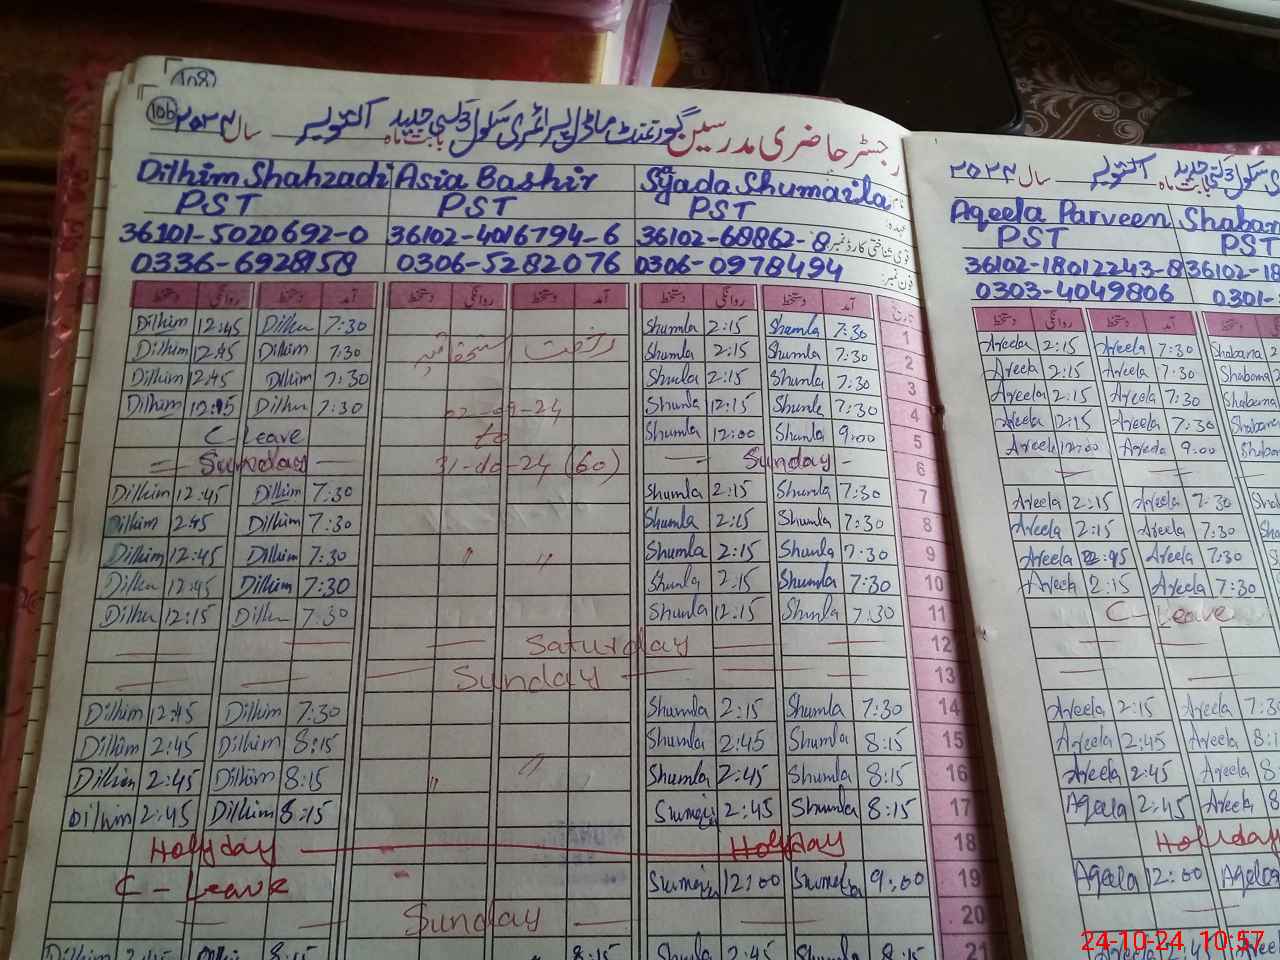 108
106 رجسٹر حاضری مدرسین گورنمنٹ ماڈل پرائمری سکول بابت ماہ اکتوبر سال ۲۰۲۴
Dilhim Shahzadi Asia Bashir Syada Shumaila نام
PST PST PST عہدہ:
36101-5020692-0 36102-4016794-6 36102-68862-8 قومی شناختی کارڈ نمبر
0336-6928158 0306-5282076 0306-0978494 فون نمبر:
دستخط روانگی دستخط آمد دستخط روانگی دستخط آمد دستخط روانگی دستخط آمد تاریخ
Dilhim 12:45 Dilhm 7:30 Shumla 2:15 Shumla 7:30 1
Dilhim 12:45 Dilhim 7:30 رخصت Shumla 2:15 Shumla 7:30 2
Dilhim 12:45 Dilhim 7:30 Shumla 2:15 Shumla 7:30 3
Dilhim 12:15 Dilhm 7:30 02-09-24 Shumla 12:15 Shumla 7:30 4
C-Leave to Shumla 12:00 Shumla 9:00 5
Sunday 31-10-24 (60) Sunday 6
Dilhim 12:45 Dilhim 7:30 Shumla 2:15 Shumla 7:30 7
Dilhim 2:45 Dilhim 7:30 Shumla 2:15 Shumla 7:30 8
Dilhim 12:45 Dilhim 7:30 " " Shumla 2:15 Shumla 7:30 9
Dilhm 12:45 Dilhim 7:30 Shumla 2:15 Shumla 7:30 10
Dilhm 12:15 Dilhm 7:30 Shumla 12:15 Shumla 7:30 11
Saturday 12
Sunday 13
Dilhim 12:45 Dilhim 7:30 Shumla 2:15 Shumla 7:30 14
Dilhim 2:45 Dilhim 8:15 Shumla 2:45 Shumla 8:15 15
Dilhim 2:45 Dilhim 8:15 " " Shumla 2:45 Shumla 8:15 16
Dilhim 2:45 Dilhim 8:15 2:45 Shumla 8:15 17
Holyday Holyday 18
C-Leave 12:00 9:00 19
Sunday 20
Dilhim 2:45 8:15 8:15 Shumla 2:45 Shumla 8:15 21
بابت ماہ اکتوبر سال ۲۰۲۴
Aqeela Parveen Shaban
PST PST
36102-18012243-8 36102-18
0303-4049806 0301-
دستخط روانگی دستخط آمد دستخط
Aqeela 2:15 Aqeela 7:30 Shabana
Aqeela 2:15 Aqeela 7:30 Shabana
Aqeela 2:15 Aqeela 7:30 Shabana
Aqeela 12:15 Aqeela 7:30 Shabana
Aqeela 12:00 Aqeela 9:00
Aqeela 2:15 Aqeela 7:30
Aqeela 2:15 Aqeela 7:30
Aqeela Aqeela 7:30
Aqeela 2:15 Aqeela 7:30
C-Leave
Aqeela 2:15 Aqeela 7:3
Aqeela 2:45 Aqeela 8:1
Aqeela 2:45 Aqeela 8
Aqeela 2:45 Aqeela 8
Holyday
Aqeela 12:00 Aqeela
24-10-24 10:57